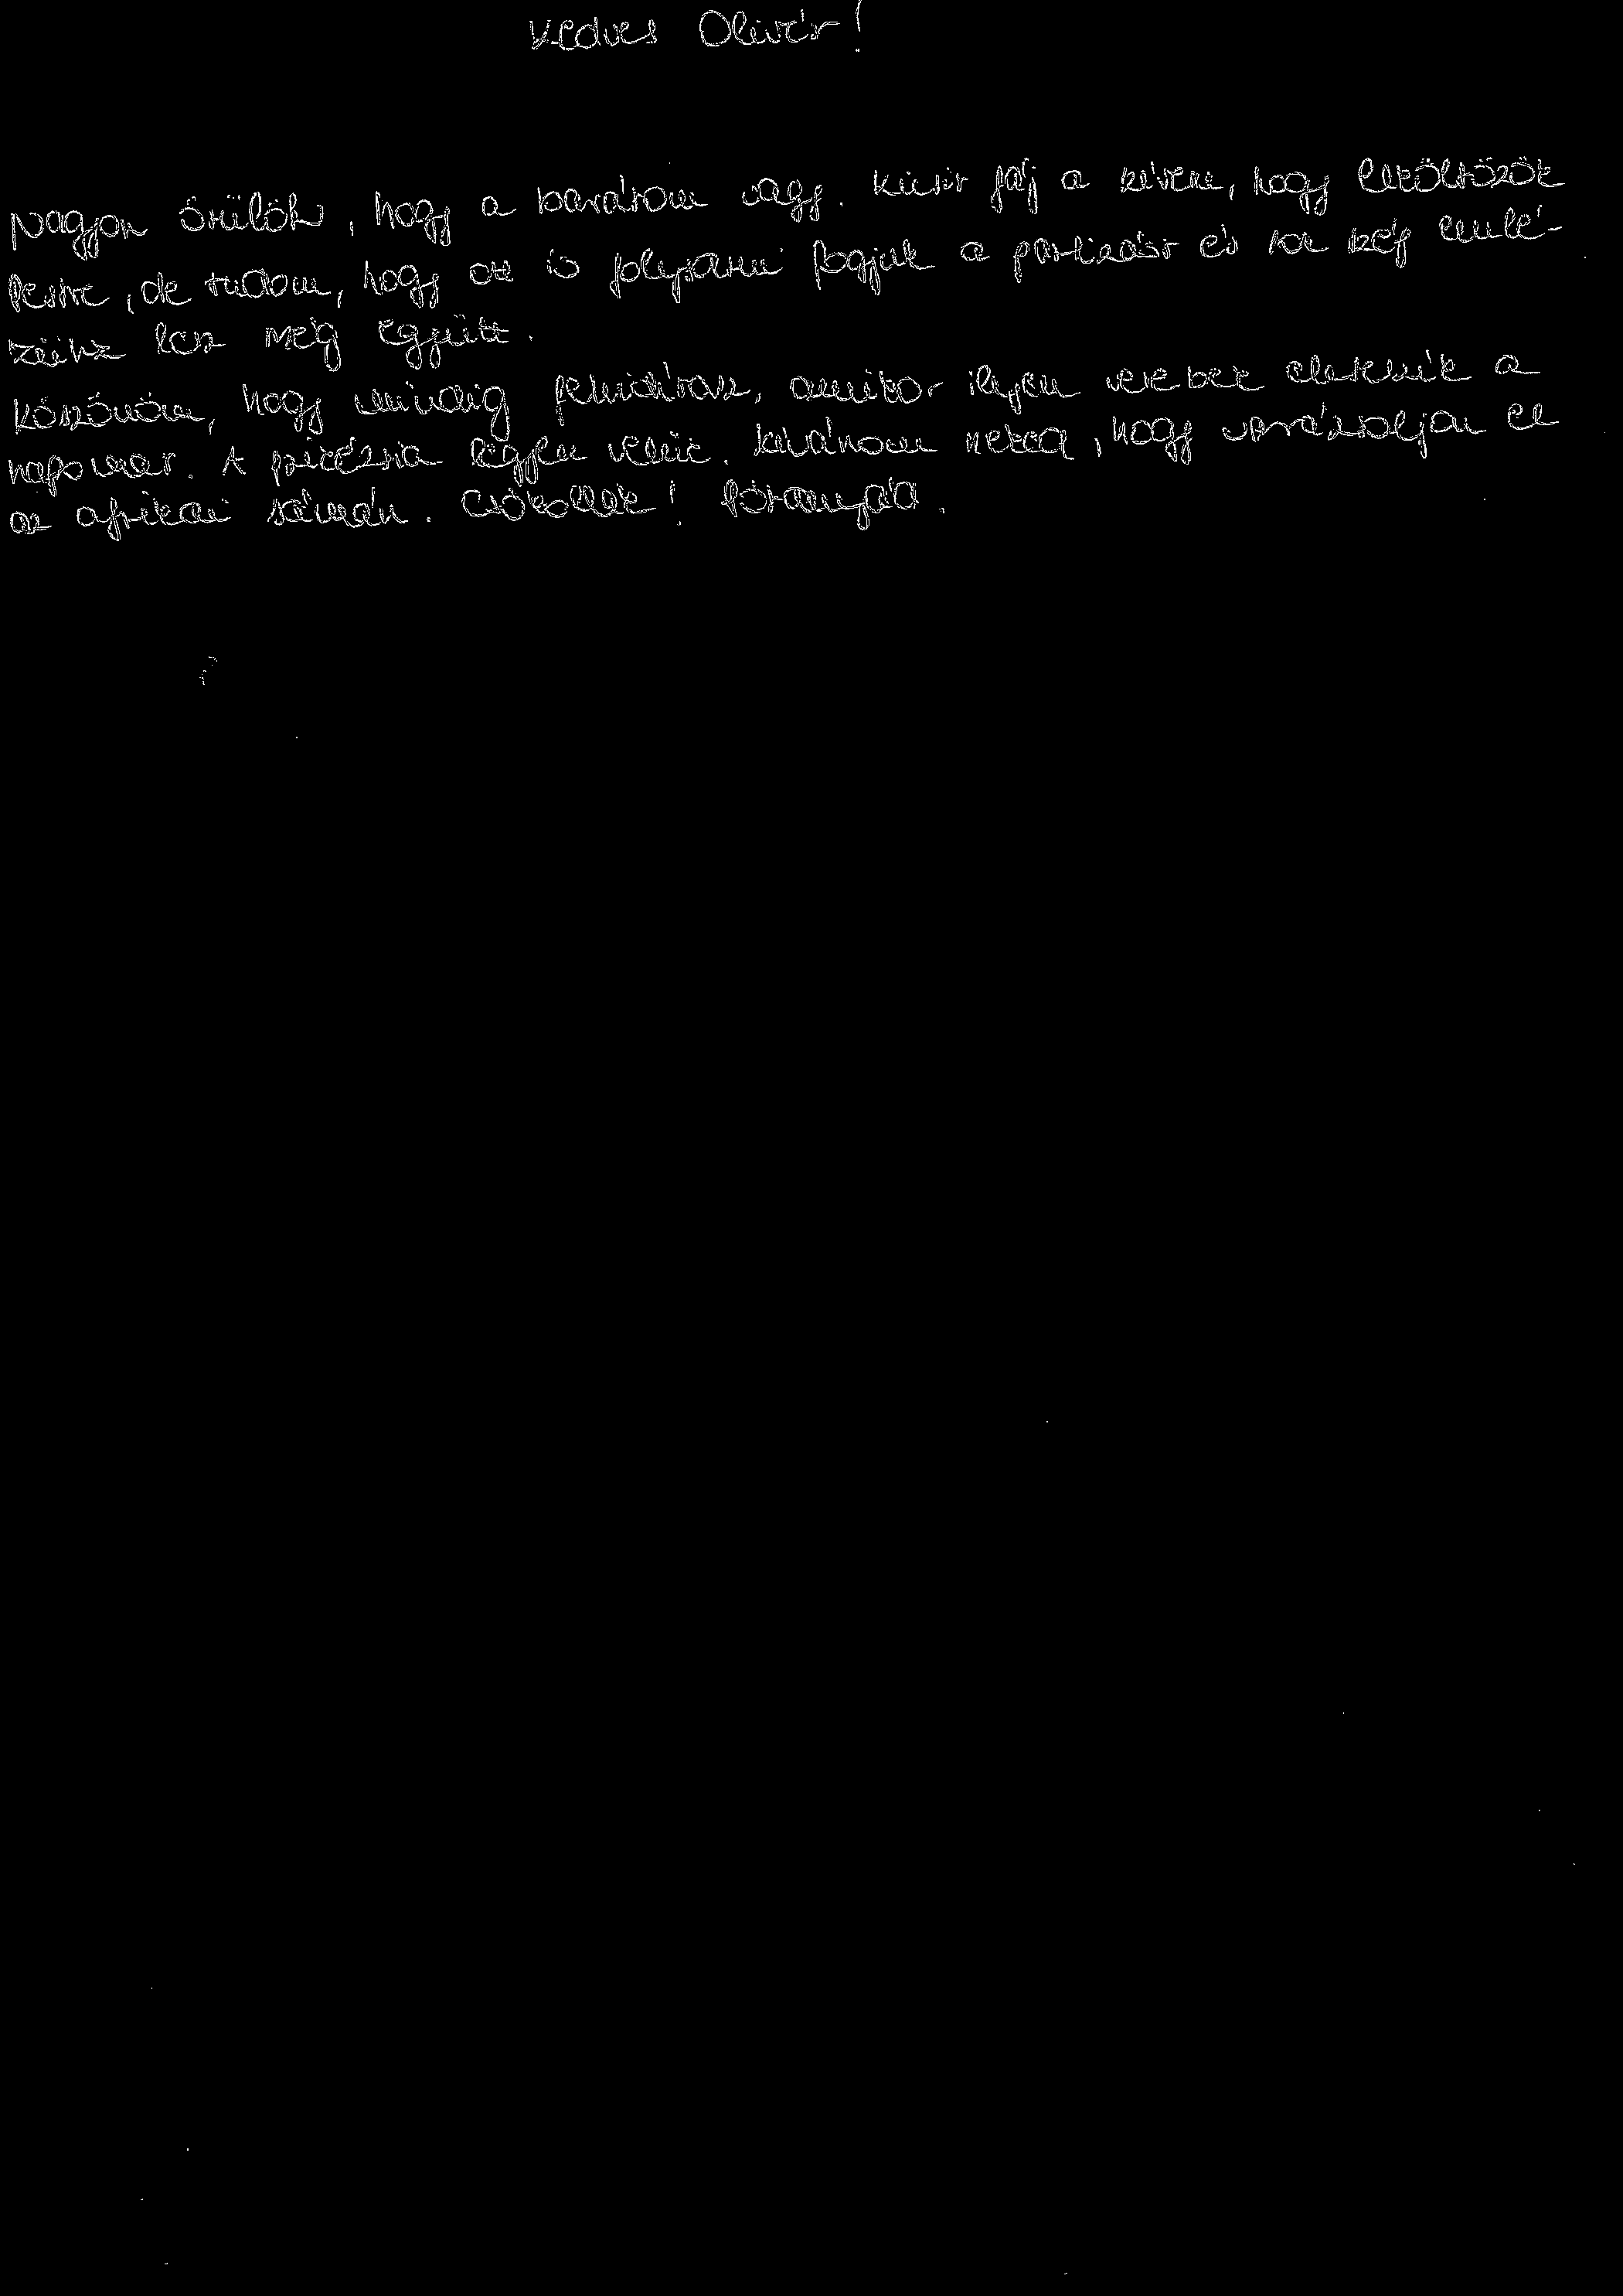 Kedves Olivér!
Nagyon örülök, hogy a barátom vagy. Kicsit fáj a szívem, hogy elköltözök
Pestre, de tudom, hogy ott is folytatni fogjuk a partizást és sok szép emlé-
künk lesz még együtt.
Köszönöm, hogy mindig felvidítasz, amikor ilyen verebek elesnék a
napomat. A pacézia légyen velünk. Kívánom neked, hogy varázsoljon el
az afrikai sámán. Csókollak! Pótanyád.